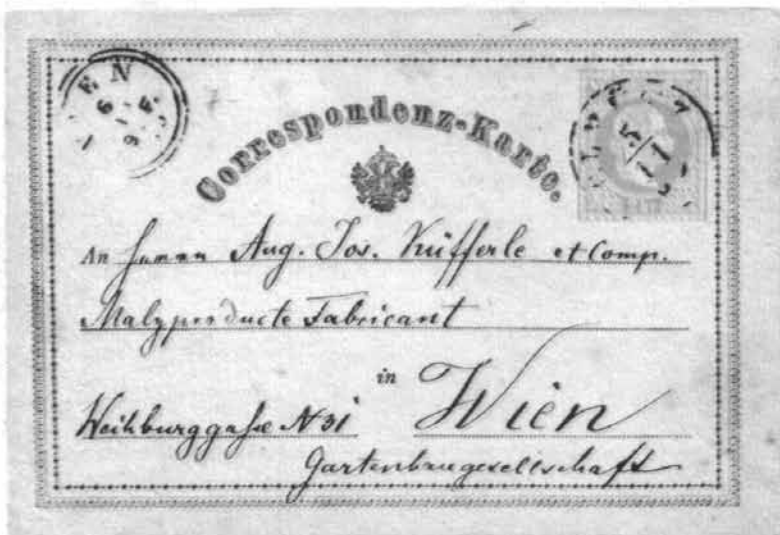 Correspondenz-Karte.
An Herrn Aug. Jos. Küfferle et Comp.
Malzproducte Fabricant
in Wien
Weihburggasse N 31
Gartenbaugesellschaft